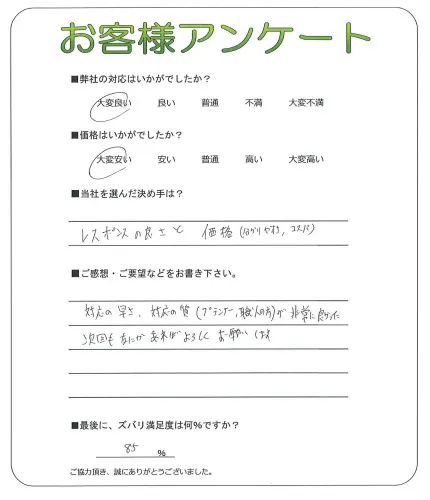 お客様アンケート
■弊社の対応はいかがでしたか？
大変良い 良い 普通 不満 大変不満
■価格はいかがでしたか？
大変安い 安い 普通 高い 大変高い
■当社を選んだ決め手は？
レスポンスの良さと 価格(分かりやすさ、コスパ)
■ご感想・ご要望などをお書き下さい。
対応の早さ、対応の質(プランナー、職人の方)が非常に良かった
次回もなにかあればよろしくお願いします
■最後に、ズバリ満足度は何%ですか？
85 %
ご協力頂き、誠にありがとうございました。